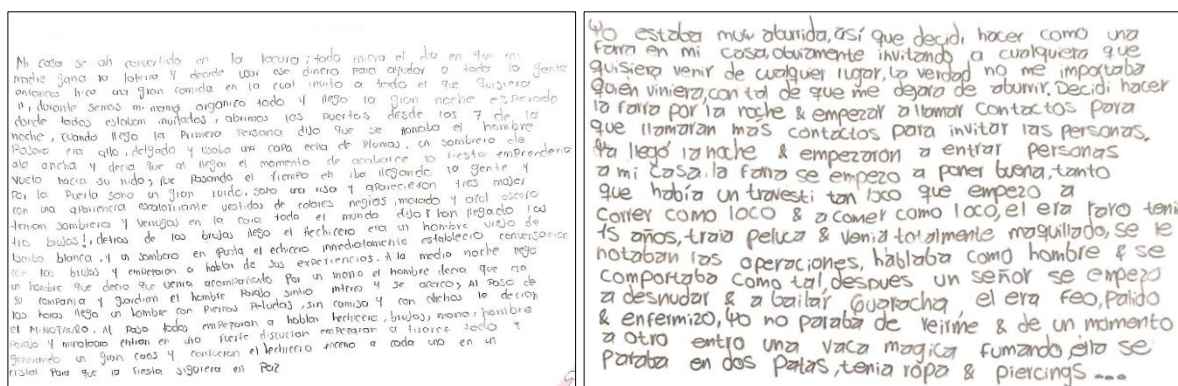 Mi casa se ah convertido en la locura, todo inicia el dia en que mi
madre gana la loteria y decide usar ese dinero para ayudar a toda la gente
entonces hizo una gran comida en la cual invito a todo el que quisiera
ir, durante semos mi mamá organizo todo y llego la gran noche esperada
donde todos estaban invitados, abrimos las puertas desde las 7 de la
noche, cuando llego la Primera Persona dijo que se llamaba el hombre
Pajaro era alto, delgado y usaba una capa echa de Plumas, un sombrero de
ala ancha y decia que al llegar el momento de acabarse la fiesta emprenderia
vuelo hacia su nido, fue Pasando el tiempo e iba llegando la gente y
Por la Puerta sono un gran ruido, sono una risa y aparecieron tres mujer
con una apariencia vestidas de colores negros, morado y azul oscuro
tenian sombreros y verrugas en la cara todo el mundo dijo ¡han llegado las
tres brujas!, detras de las brujas llego el Hechicero era un hombre viejo de
barba blanca, y un sombrero en Punta el echicero inmediatamente establecio conversacion
con las brujas y empezaron a hablar de sus experiencias. A la media noche llego
un hombre que decia que venia acompañado Por un mono el hombre decia que era
su compañia y guardian el hombre Pajaro sintio interes y se acerco, Al Paso de
las horas llego un hombre con Piernas Peludas, sin camisa y con cachos le decian
el MINOTAURO. Al Paso todos emPezaron a hablar hechicero, brujas, mono, hombre
Pajaro y minotauro entran en una fuerte discucion emPezaron a tirarse todo y
generando un gran caos y el hechicero encerro a cada uno en un
cristal Para que la fiesta siguiera en Paz
Yo estaba muy aburrida, así que decidi hacer como una
farra en mi casa, obviamente invitando a cualquiera que
quisiera venir de cualquier lugar, la verdad no me importaba
quien viniera, con tal de que me dejara de aburrir. Decidi hacer
la farra por la noche & empezar a llamar contactos para
que llamaran mas contactos para invitar las personas.
Ya llegó la noche & empezarón a entrar personas
a mi casa, la farra se empezo a poner buena, tanto
que había un travesti tan loco que empezo a
correr como loco & a comer como loco, el era raro tenia
15 años, traia peluca & venia totalmente maquillado, se le
notaban las operaciones, hablaba como hombre & se
comportaba como tal, despues un señor se empezo
a desnudar & a bailar Guaracha, el era feo, palido
& enfermizo, Yo no paraba de reirme & de un momento
a otro entro una vaca magica fumando, ella se
paraba en dos patas, tenia ropa & piercings ...